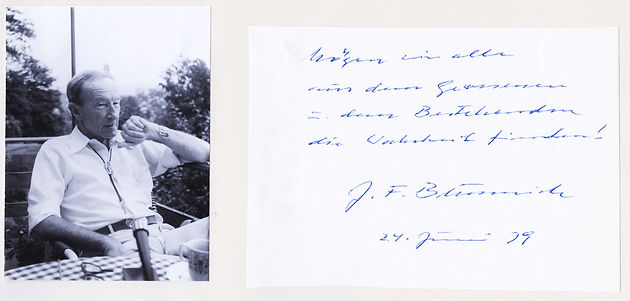 Mögen wir alle
aus dem Gewesenen
u. dem Bestehenden
die Wahrheit finden!
J. F. Blumrich
24. Juni 79